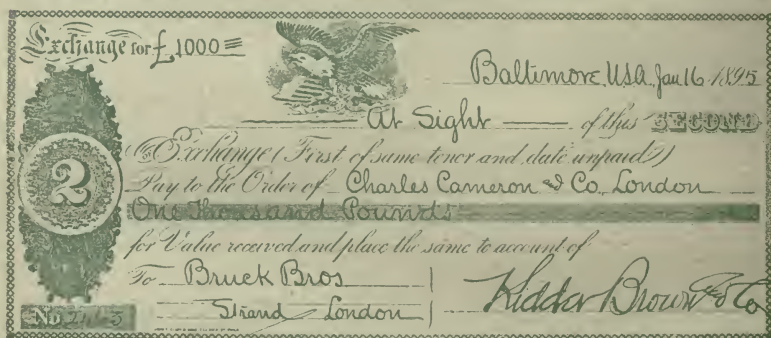 Exchange for £1000 =
Baltimore, USA, Jan 16 1895
At Sight of this SECOND
of Exchange (First of same tenor and date unpaid)
Pay to the Order of Charles Cameron & Co. London
One Thousand Pounds
for Value received and place the same to account of
To Bruck Bros
Strand London
Kidder Brown & Co
2
No